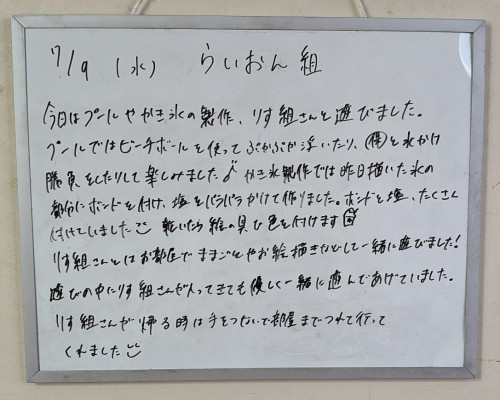 7/9 (水) らいおん組
今日はプールやかき氷の製作、りす組さんと遊びました。
プールではビーチボールを使ってぷかぷか浮いたり、と水かけ
勝負をしたりして楽しみました♪かき氷製作では昨日描いた氷の
部分にボンドを付け、塩をパラパラかけて作りました。ボンドと塩、たくさん
付けていました 乾いたら絵の具で色を付けます
りす組さんとはお部屋でままごとやお絵描きなどして一緒に遊びました!
遊びの中にりす組さんが入ってきても優しく一緒に遊んであげていました。
りす組さんが帰る時は手をつないで部屋までつれて行って
くれました